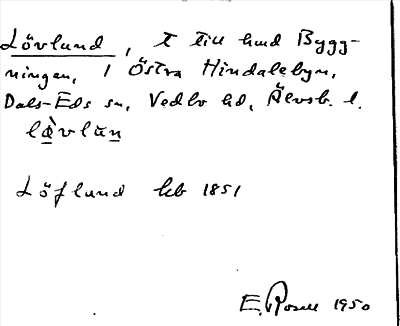 Lövlund, t till hmd Bygg-
ningen, i Östra Hindalebyn,
Dals-Eds sn, Vedbo hd, Älvsb. l.
lǝ̀vlun
Löflund hb 1851
E. Rosell 1950